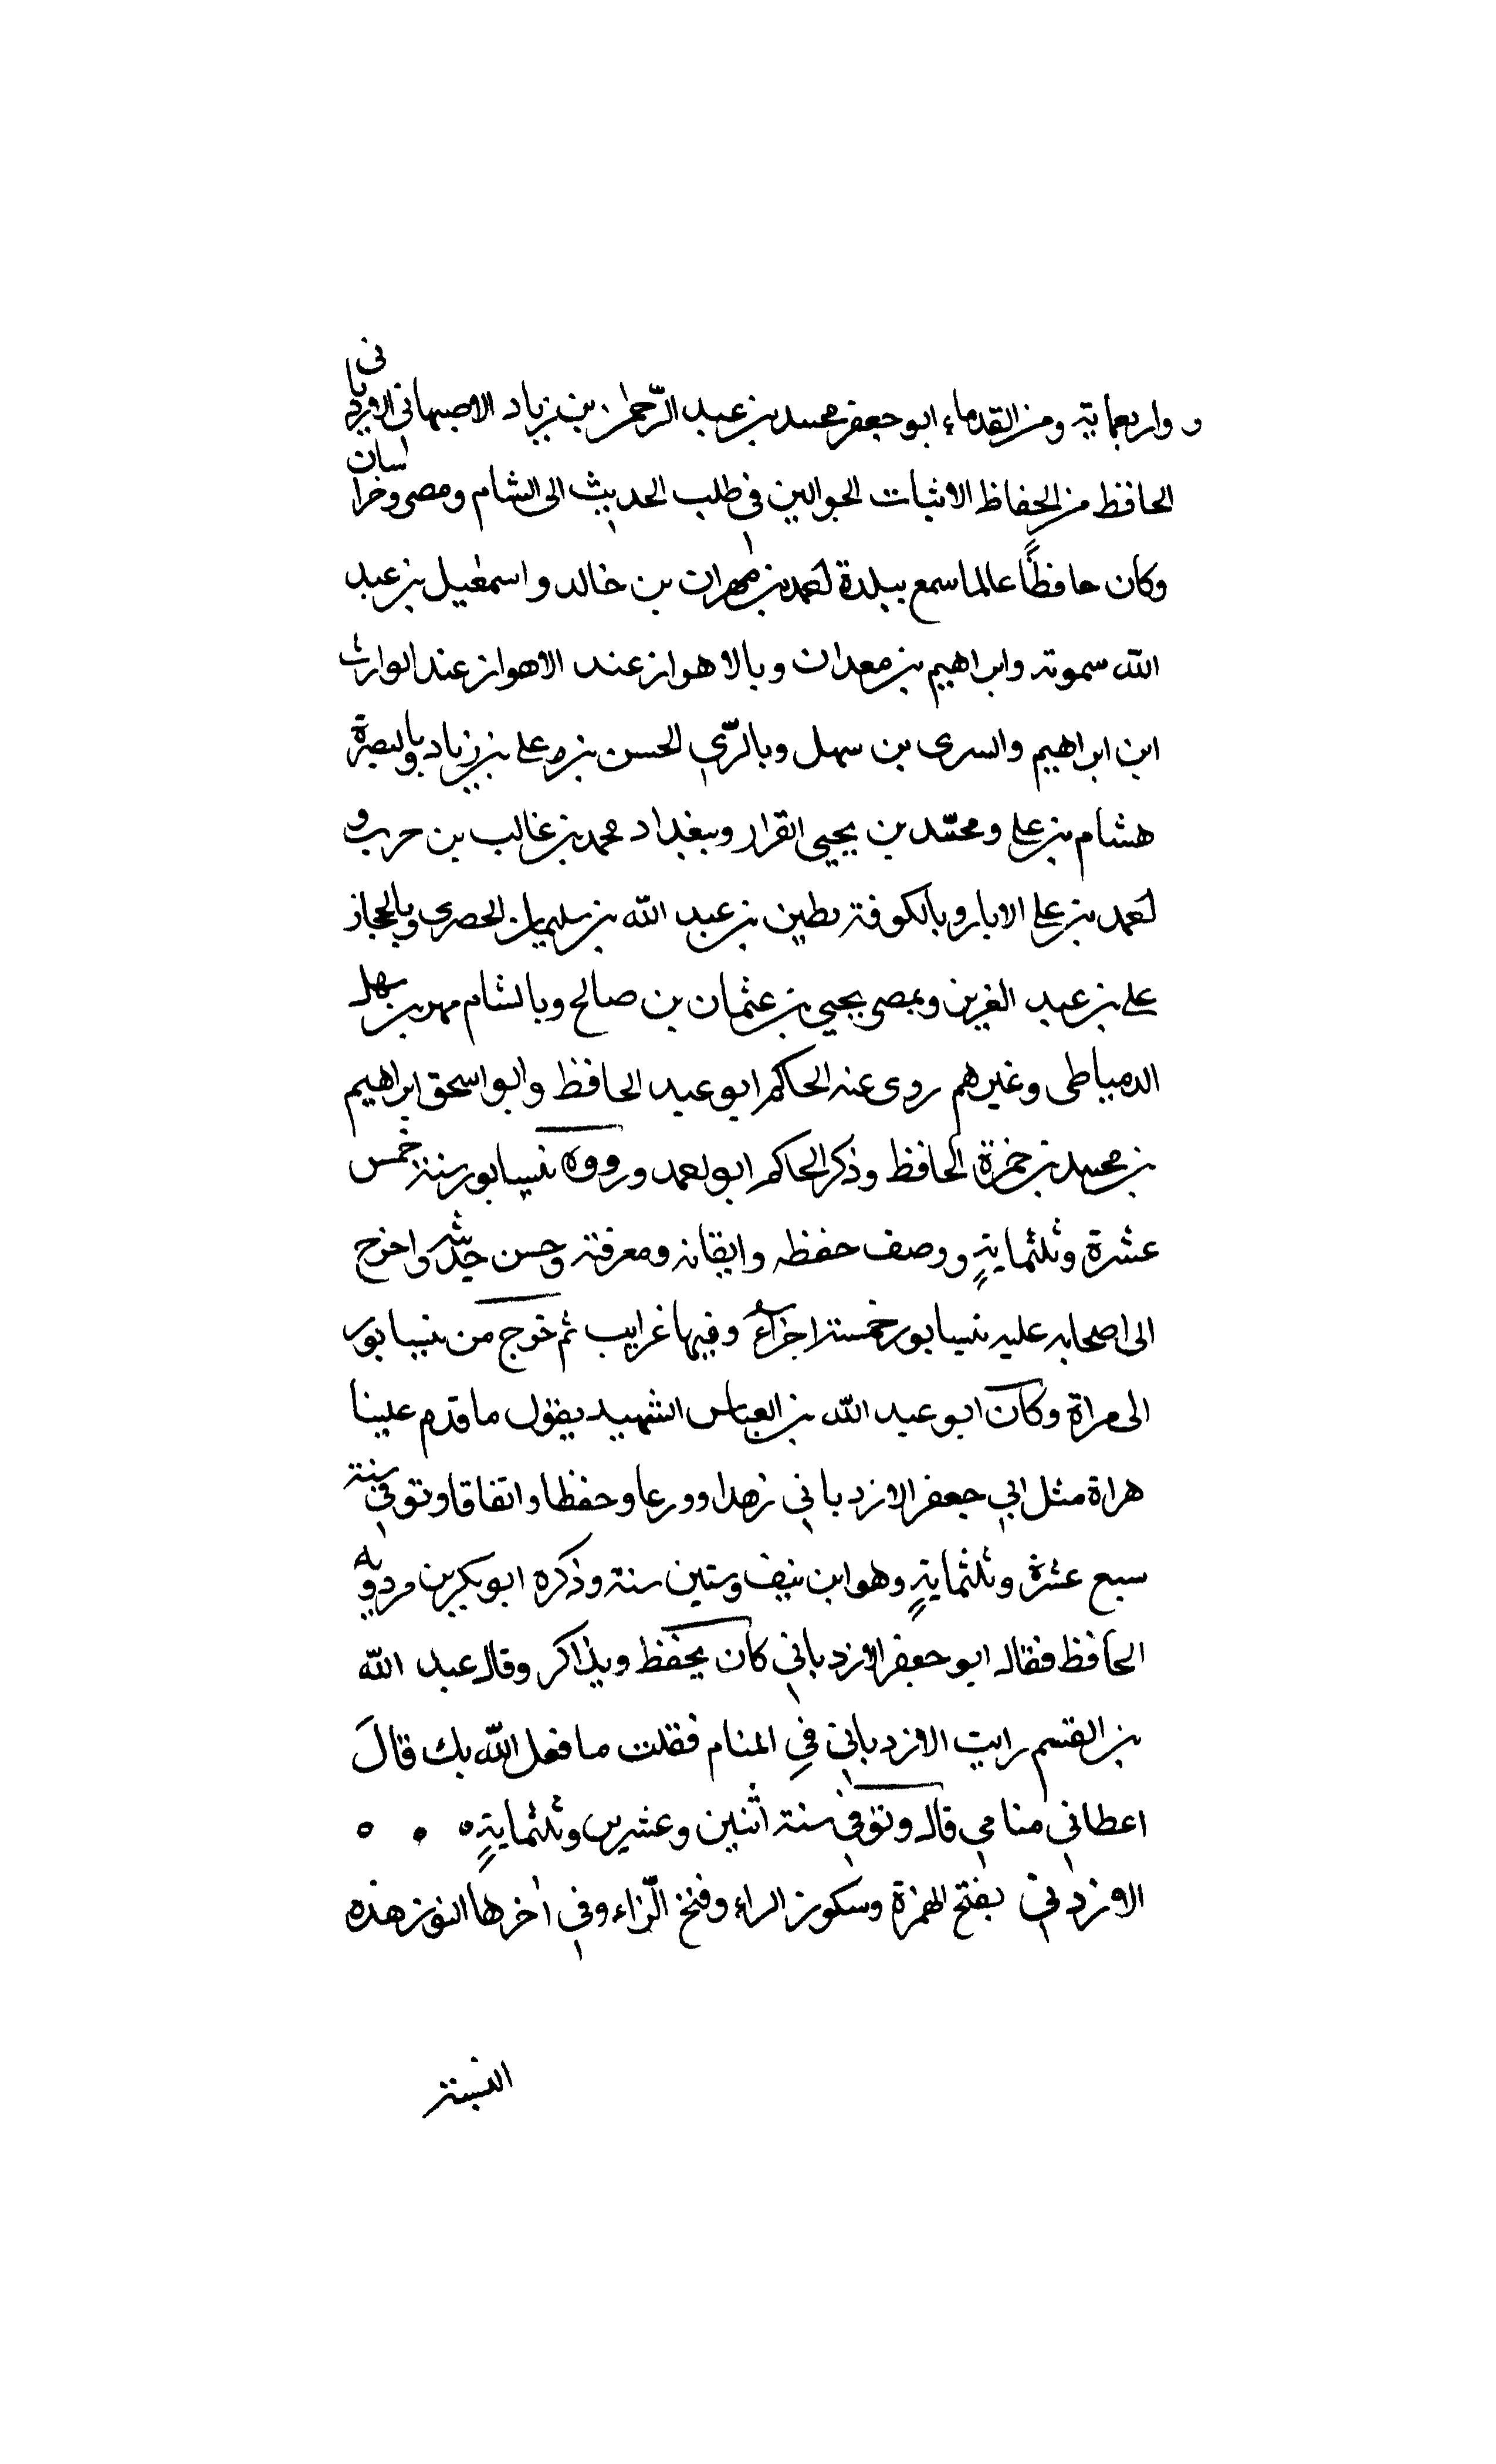 واربعماية ومن القدماء ابو جعفر محمد بن عبد الرّحمن بن زياد الاصبهاني الارزدباني
الحافظ من الحفاظ الاثبات الجوالين في طلب الحديث الى الشام ومصر وخراسان
وكان حافظًا عالما سمع ببلدة احمد بن مهران بن خالد و اسمعيل بن عبد
الله سمويه وابراهيم بن معدان وبالاهواز عند الاهواز عند الوارث
ابن ابراهيم والسرى بن سهل وبالرّي الحسن بن علي بن زياد وبالبصرة
هشام بن علي و محمّد بن يحيى القزاز وببغداد محمد بن غالب بن حرب و
احمد بن علي الابار وبالكوفة مطين بن عبد الله بن سليمان الحضرى وبالحجاز
علي بن عبد العزيز وبمصر يحيى بن عثمان بن صالح وبالشام بن سهل
الدمياطى وغيرهم روى عنه الحاكم ابو عبد الحافظ وابو اسحق ابراهيم
بن محمد بن حمزة الحافظ وذكر الحاكم ابو احمد وروده نيسابور سنة خمس
عشرة وثلثمايةٍ ووصف حفظه واتقانه ومعرفته وحسن حديثه واخرج
الى اصحابه عليه نيسابور خمسة اجزاء وفيها غرايب ثم خرج من نيسابور
الى مراة وكان ابو عبد الله بن العباس الشهيد يقول ما قدم علينا
هراة مثل ابي جعفر الارزدباني زهدا وورعا وحفظا واتقانا وتوفي سنة
سبع عشرة وثلثمايةٍ وهو ابن نيف وستين سنة وذكره ابو بكر بن مردويه
الحافظ فقال ابو جعفر الارزدباني كان يحفظ ويذاكر وقال عبد الله
بن القسم رايت الارزدباني في المنام فقلت ما فعل الله بك قالَ
اعطاني منامي قال وتوفي سنة اثنين وعشرين وثلثمايةٍ
بفتح الهمزة وسكون الراء وفتح الزاء وفي اخرها النون هذه
النسبة